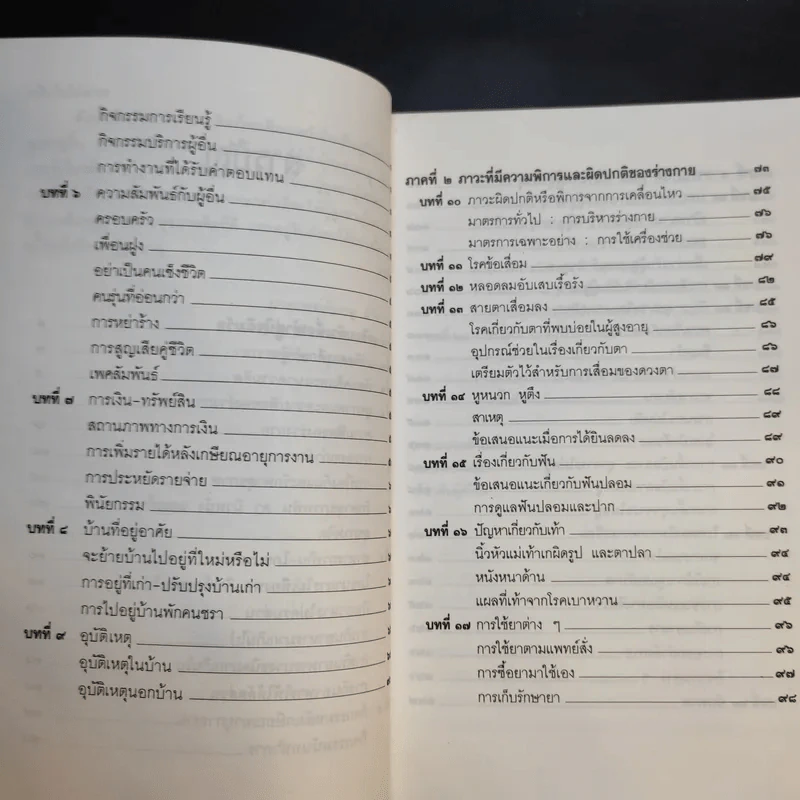 กิจกรรมการเรียนรู้
กิจกรรมบริการผู้อื่น
การทำงานที่ได้รับค่าตอบแทน
บทที่ ๖ ความสัมพันธ์กับผู้อื่น
ครอบครัว
เพื่อนฝูง
อย่าเป็นคนเซ็งชีวิต
คนรุ่นที่อ่อนกว่า
การหย่าร้าง
การสูญเสียคู่ชีวิต
เพศสัมพันธ์
บทที่ ๗ การเงิน-ทรัพย์สิน
สถานภาพทางการเงิน
การเพิ่มรายได้หลังเกษียณอายุการงาน
การประหยัดรายจ่าย
พินัยกรรม
บทที่ ๘ บ้านที่อยู่อาศัย
จะย้ายบ้านไปอยู่ที่ใหม่หรือไม่
การอยู่ที่เก่า-ปรับปรุงบ้านเก่า
การไปอยู่บ้านพักคนชรา
บทที่ ๙ อุบัติเหตุ
อุบัติเหตุในบ้าน
อุบัติเหตุนอกบ้าน
ภาคที่ ๒ ภาวะที่มีความพิการและผิดปกติของร่างกาย ๗๓
บทที่ ๑๐ ภาวะผิดปกติหรือพิการจากการเคลื่อนไหว ๗๕
มาตรการทั่วไป : การบริหารร่างกาย ๗๖
มาตรการเฉพาะอย่าง : การใช้เครื่องช่วย ๗๖
บทที่ ๑๑ โรคข้อเสื่อม ๗๙
บทที่ ๑๒ หลอดลมอับเสบเรื้อรัง ๘๒
บทที่ ๑๓ สายตาเสื่อมลง ๘๕
โรคเกี่ยวกับตาที่พบบ่อยในผู้สูงอายุ ๘๖
อุปกรณ์ช่วยในเรื่องเกี่ยวกับตา ๘๖
เตรียมตัวไว้สำหรับการเสื่อมของดวงตา ๘๗
บทที่ ๑๔ หูหนวก หูตึง ๘๘
สาเหตุ ๘๙
ข้อเสนอแนะเมื่อการได้ยินลดลง ๘๙
บทที่ ๑๕ เรื่องเกี่ยวกับฟัน ๙๐
ข้อเสนอแนะเกี่ยวกับฟันปลอม ๙๑
การดูแลฟันปลอมและปาก ๙๒
บทที่ ๑๖ ปัญหาเกี่ยวกับเท้า ๙๓
นิ้วหัวแม่เท้าเกผิดรูป และตาปลา ๙๔
หนังหนาด้าน ๙๔
แผลที่เท้าจากโรคเบาหวาน ๙๕
บทที่ ๑๗ การใช้ยาต่าง ๆ ๙๖
การใช้ยาตามแพทย์สั่ง ๙๖
การซื้อยามาใช้เอง ๙๗
การเก็บรักษายา ๙๘